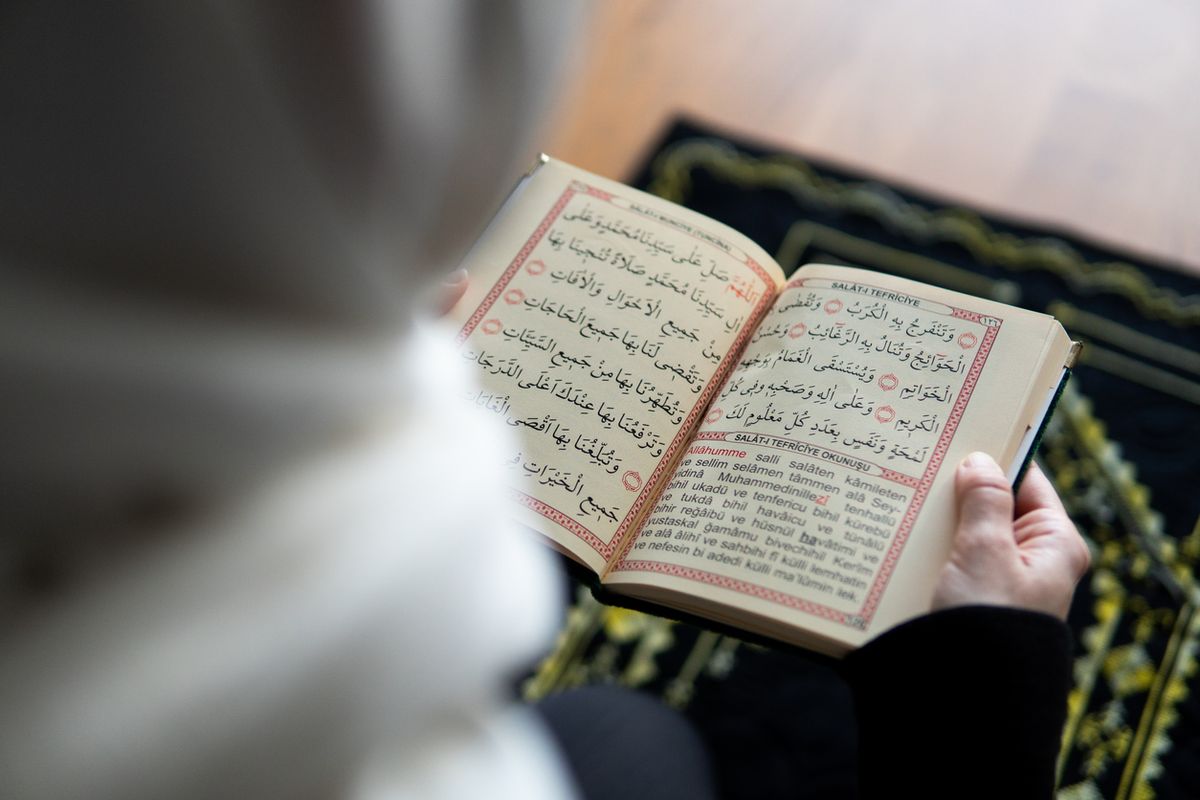 SALÂT-I TEFRÎCİYE
١٢٦
وَتَنْفَرِجُ بِهِ الْكُرَبُ وَتُقْضٰى
الْحَوَٓائِجُ وَتُنَالُ بِهِ الرَّغَٓائِبُ وَحُسْنُ
الْخَوَاتِمِ وَيُسْتَسْقَى الْغَمَامُ بِوَجْهِهِ
الْكَرِيمِ وَعَلٰى اٰلِهِ وَصَحْبِهِ وَفِى كُلِّ
لَمْحَةٍ وَنَفَسٍ بِعَدَدِ كُلِّ مَعْلُومٍ لَكَ
SALÂT-I TEFRÎCİYE OKUNUŞU
Allâhumme salli salâten kâmileten
ve sellim selâmen tâmmen alâ Sey-
yidinâ Muhammedinillezî tenhallü
bihil ukadü ve tenfericu bihil kürebü
ve tukdâ bihil havâicu ve tünâlü
bihir reğâibü ve hüsnül havâtimi ve
yustaskal ğamâmu bivechihil Kerîm
ve alâ âlihî ve sahbihi fî külli lemhatin
ve nefesin bi adedi külli ma'lûmin lek.
SALÂT-I MÜNCİYE (TÜNCÎNÂ)
اَللّٰهُمَّ صَلِّ عَلٰى سَيِّدِنَا مُحَمَّدٍ وَعَلٰى
اٰلِ سَيِّدِنَا مُحَمَّدٍ صَلَاةً تُنْجِينَا بِهَا
مِنْ جَمِيعِ الْاَحْوَالِ وَالْاٰفَاتِ
وَتَقْضِى لَنَا بِهَا جَمِيعَ الْحَاجَاتِ
وَتُطَهِّرُنَا بِهَا مِنْ جَمِيعِ السَّيِّئَاتِ
وَتَرْفَعُنَا بِهَا عِنْدَكَ اَعْلَى الدَّرَجَاتِ
وَتُبَلِّغُنَا بِهَا اَقْصَى الْغَايَاتِ
جَمِيعِ الْخَيْرَاتِ فِى